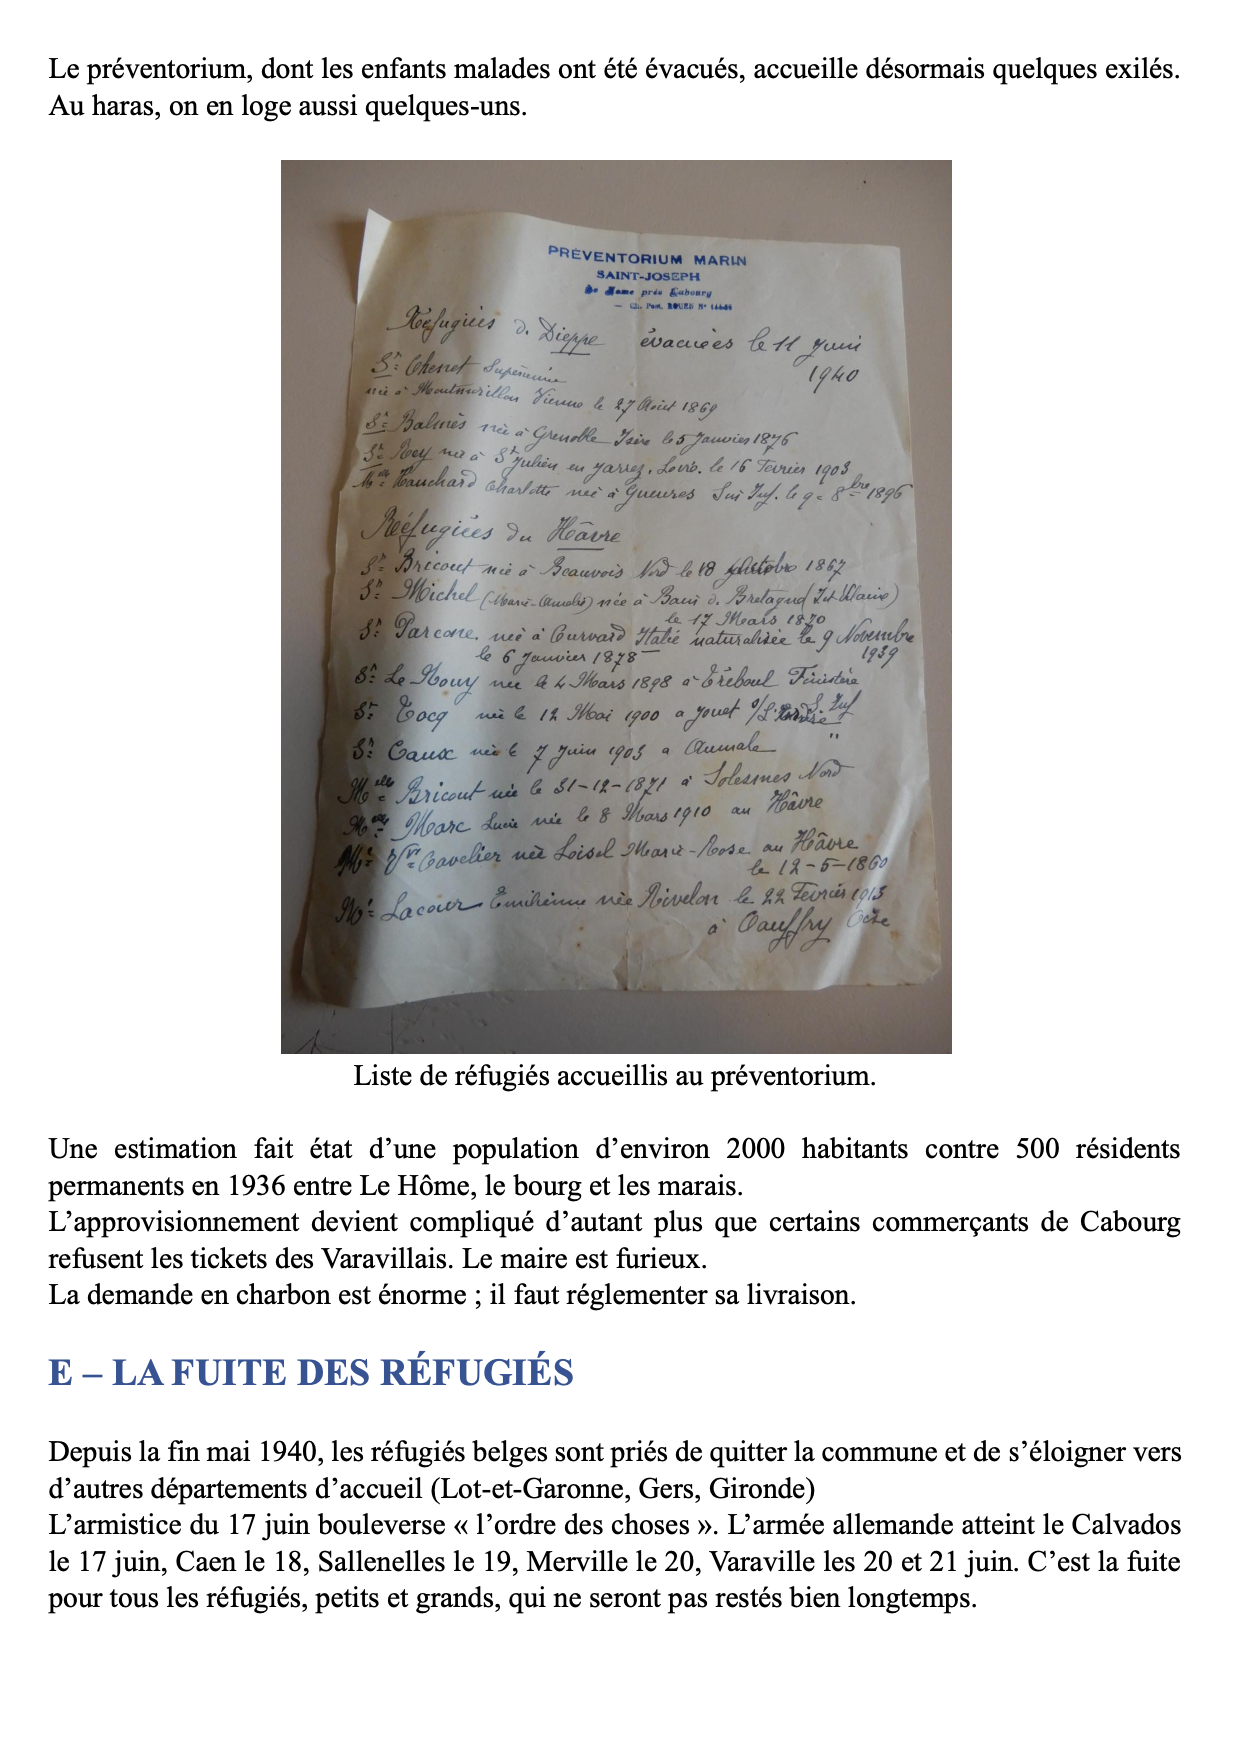 Le préventorium, dont les enfants malades ont été évacués, accueille désormais quelques exilés.
Au haras, on en loge aussi quelques-uns.
PRÉVENTORIUM MARIN
SAINT-JOSEPH
Le Home près Cabourg
Ch. Post. ROUEN N°
Réfugiées de Dieppe évacuées le 11 juin
1940
Sr Chenet Supérieure
née à Montmorillon Vienne le 27 Août 1869
Sr Balmès née à Grenoble Isère le 5 Janvier 1876
Sr Rey née à St Julien en Jarrez, Loire. le 16 Février 1903
Hauchard Charlotte née à Gueures Sei Inf. le 9 - 8bre 1896
Réfugiées du Hâvre
Sr Bricout née à Beauvois Nord le 18 octobre 1867
Sr Michel (Marie-Amélie) née à Bain de Bretagne (Il et Vilaine)
le 17 Mars 1870
Sr Parcone née à Italie naturalisée le 9 Novembre
1939
le 6 Janvier 1878
Sr Le Nouy née le 4 Mars 1898 à Tréboul Finistère
Sr Cocq née le 12 Mai 1900 a S. Inf
Sr Caux née le 7 Juin 1903 a Aumale "
Melle Bricout née le 31-12-1871 à Solesmes Nord
Marc Lucie née le 8 Mars 1910 au Hâvre
Me Vve Cavelier née Loisel Marie-Rose au Hâvre
le 12-5-1860
Me Lacour née Rivelon le 22 Février 1913
à Oise
Liste de réfugiés accueillis au préventorium.
Une estimation fait état d’une population d’environ 2000 habitants contre 500 résidents
permanents en 1936 entre Le Hôme, le bourg et les marais.
L’approvisionnement devient compliqué d’autant plus que certains commerçants de Cabourg
refusent les tickets des Varavillais. Le maire est furieux.
La demande en charbon est énorme ; il faut réglementer sa livraison.
E – LA FUITE DES RÉFUGIÉS
Depuis la fin mai 1940, les réfugiés belges sont priés de quitter la commune et de s’éloigner vers
d’autres départements d’accueil (Lot-et-Garonne, Gers, Gironde)
L’armistice du 17 juin bouleverse « l’ordre des choses ». L’armée allemande atteint le Calvados
le 17 juin, Caen le 18, Sallenelles le 19, Merville le 20, Varaville les 20 et 21 juin. C’est la fuite
pour tous les réfugiés, petits et grands, qui ne seront pas restés bien longtemps.